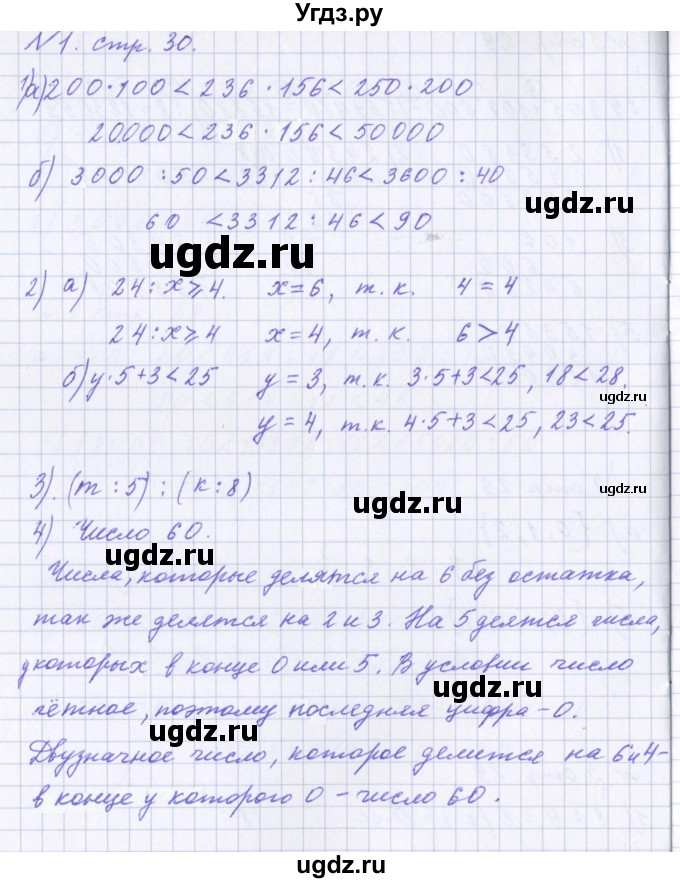 Угдз.ру
№1. стр. 30.
1) а) 200·100<236·156<250·200
20000<236·156<50000
б) 3000:50<3312:46<3600:40
60 <3312:46<90
ugdz.ru
2) а) 24:x⩾4. x=6, т.к. 4=4
24:x⩾4 x=4, т.к. 6>4
б) y·5+3<25 y=3, т.к. 3·5+3<25, 18<28.
ugdz.ru
y=4, т.к. 4·5+3<25, 23<25.
ugdz.ru
3). (m:5):(k:8)
ugdz.ru
4) Число 60.
ugdz.ru
Числа, которые делятся на 6 без остатка,
так же делятся на 2 и 3. На 5 делтся числа,
у которых в конце 0 или 5. В условии число
ugdz.ru
чётное, поэтому последняя цифра-0.
Двузначное число, которое делится на 6и4-
ugdz.ru
в конце у которого 0 - число 60.
ugdz.ru
ugdz.ru